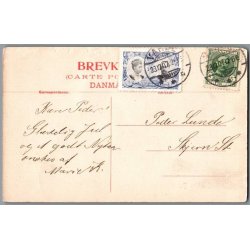 BREVK
(CARTE PO
DANMA
Kære Peder!
Glædelig Jul
og et godt Nytaar
ønskes af
Marie K.
Peder Lunde
Skjern St.